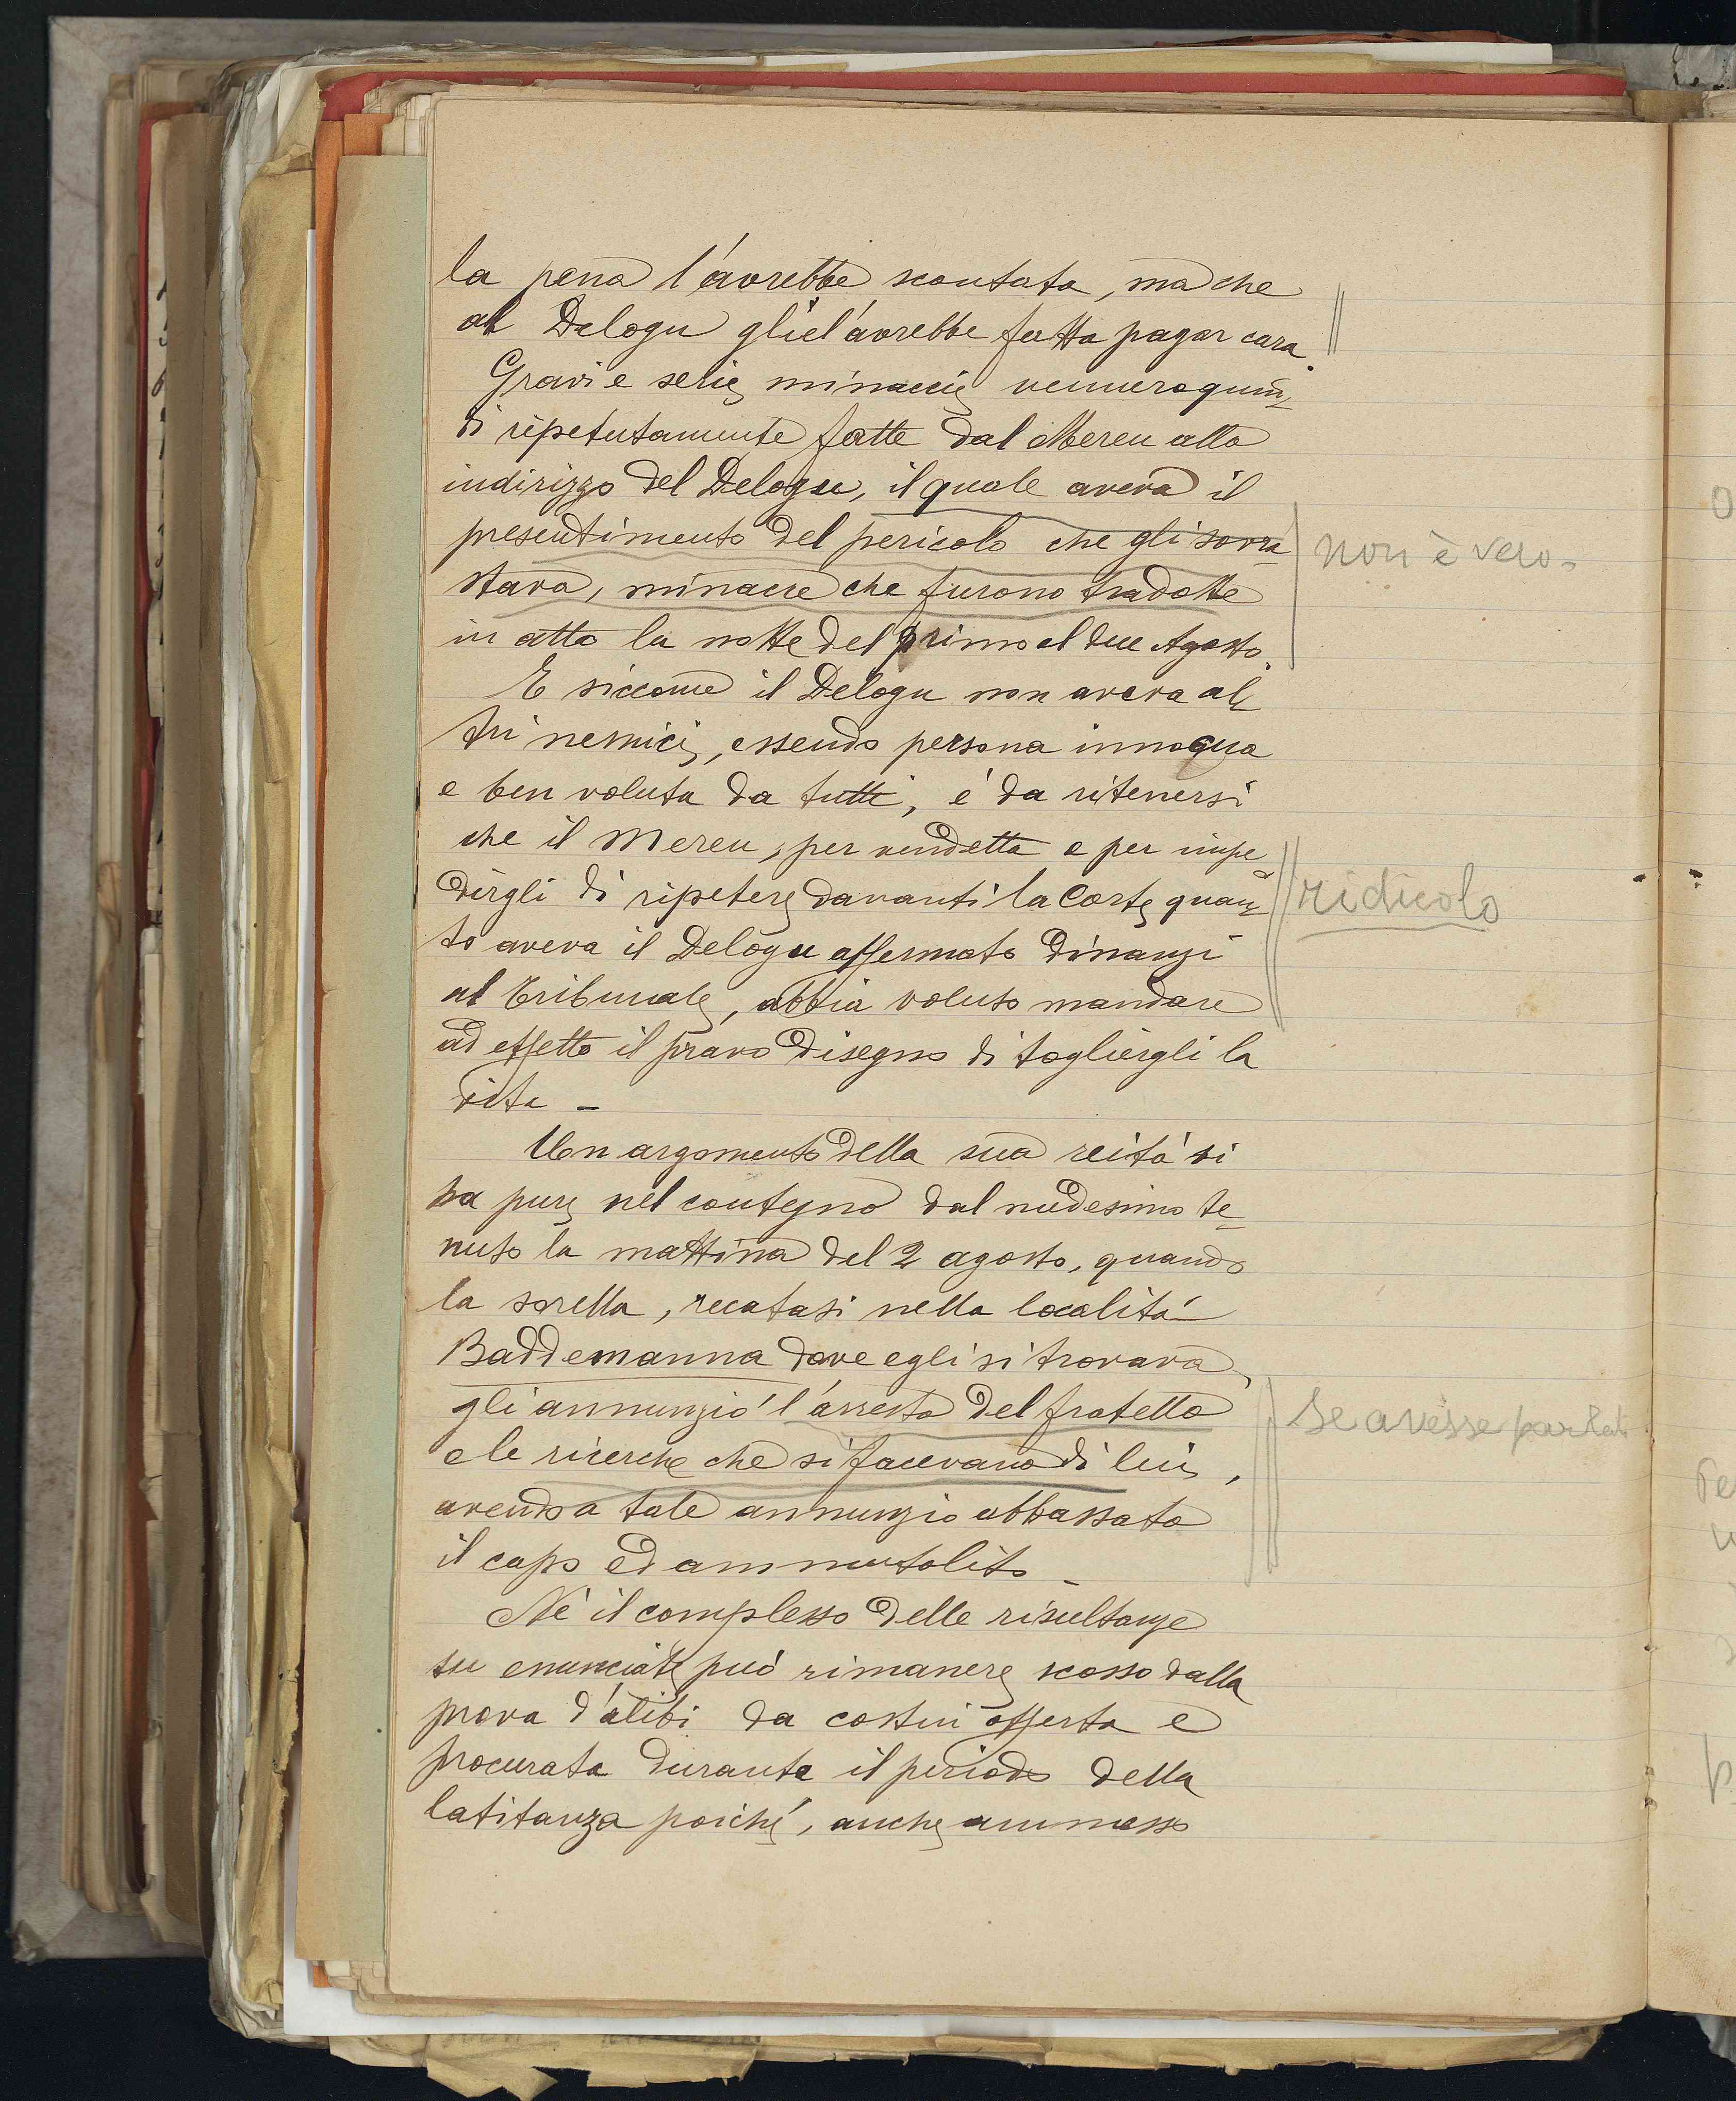 la pena l'avrebbe scontata, ma che
al Delogu gliel'avrebbe fatta pagar cara.
Gravi e serie minaccie vennero quin-
di ripetutamente fatte dal Mereu allo
indirizzo del Delogu, il quale aveva il
presentimento del pericolo che gli sovra-
stava, minacce che furono tradotte
non è vero.
in atto la notte del primo al due Agosto.
E siccome il Delogu non aveva al-
tri nemici, essendo persona innoqua
e ben voluta da tutti, é da ritenersi
che il Mereu, per vendetta e per impe-
dirgli di ripetere davanti la Corte quan-
ridicolo
to aveva il Delogu affermato dinanzi
al Tribunale, abbia voluto mandare
ad effetto il pravo disegno di togliergli la
vita -
Un argomento della sua reitá si
ha pure nel contegno dal medesimo te-
nuto la mattina del 2 agosto, quando
la sorella, recatasi nella localitá
Baddemanna dove egli si trovava,
gli annunzió l'arresto del fratello
se avesse parlato
e le ricerche che si facevano di lui,
avendo a tale annunzio abbassato
il capo ed ammutolito -
Né il complesso delle risultanze
su enunciate puó rimanere scosso dalla
prova d'alibi da costui offerta e
procurata durante il periodo della
latitanza poiché, anche ammesso